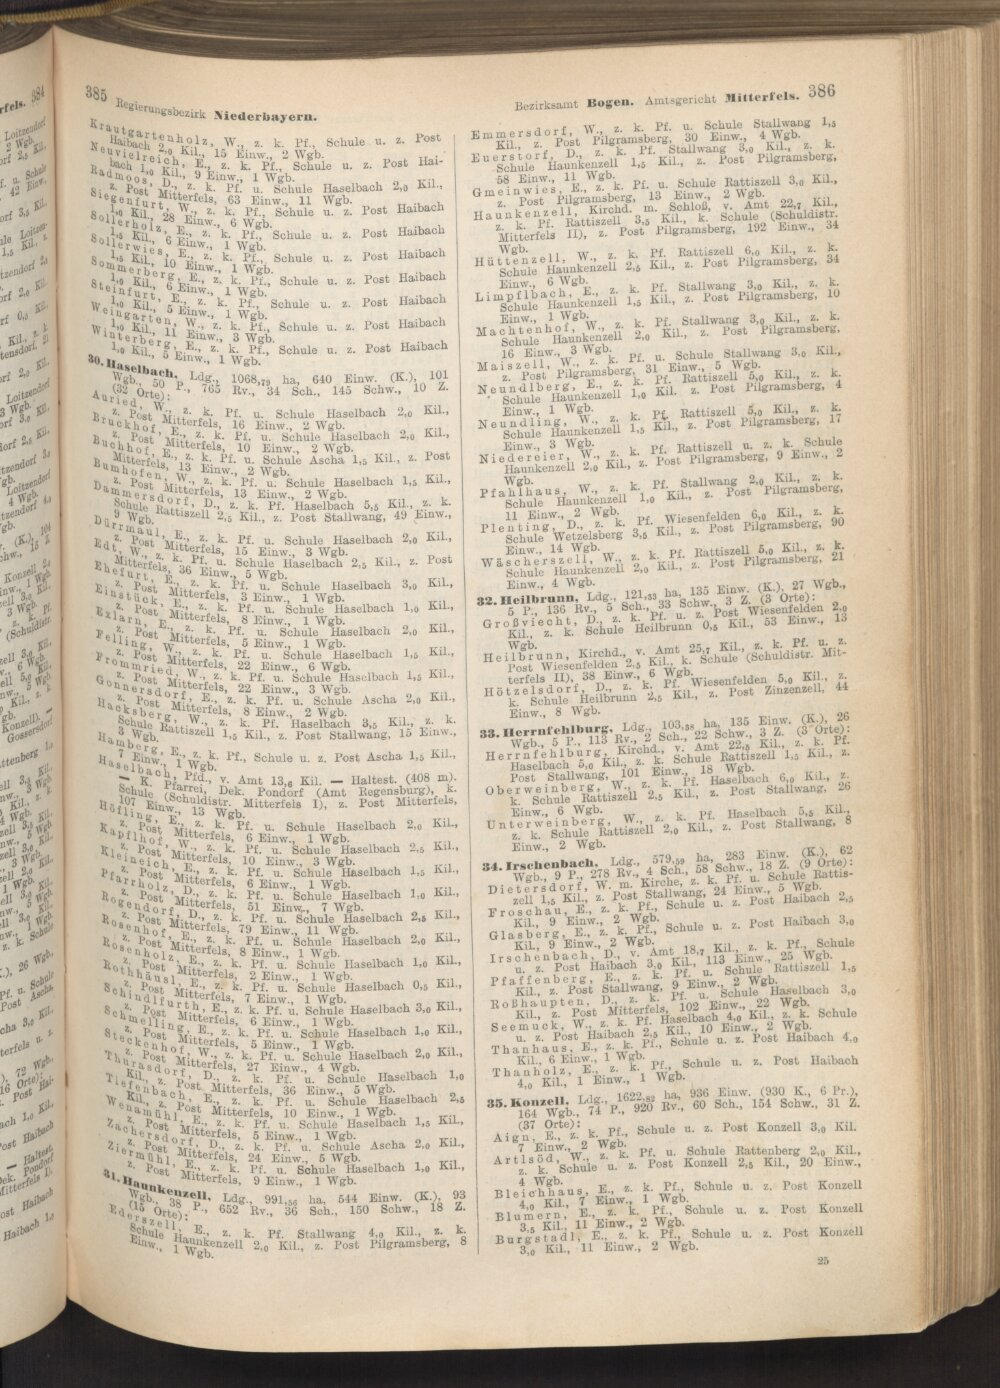 385 Regierungsbezirk Niederbayern.
Krautgartenholz, W., z. k. Pf., Schule u. z. Post
Haibach 2,0 Kil., 15 Einw., 2 Wgb.
Neuvielreich, E., z. k. Pf., Schule u. z. Post Hai-
bach 1,0 Kil., 9 Einw., 1 Wgb.
Radmoos, D., z. k. Pf. u. Schule Haselbach 2,0 Kil.,
z. Post Mitterfels, 63 Einw., 11 Wgb.
Siegenfurt, W., z. k. Pf., Schule u. z. Post Haibach
1,0 Kil., 28 Einw., 6 Wgb.
Sollerholz, E., z. k. Pf., Schule u. z. Post Haibach
1,5 Kil., 6 Einw., 1 Wgb.
Sollerwies, E., z. k. Pf., Schule u. z. Post Haibach
1,5 Kil., 10 Einw., 1 Wgb.
Sommerberg, E., z. k. Pf., Schule u. z. Post Haibach
1,0 Kil., 6 Einw., 1 Wgb.
Steinfurt, E., z. k. Pf., Schule u. z. Post Haibach
1,0 Kil., 5 Einw., 1 Wgb.
Weingarten, W., z. k. Pf., Schule u. z. Post Haibach
1,0 Kil., 11 Einw., 3 Wgb.
Winterberg, E., z. k. Pf., Schule u. z. Post Haibach
1,0 Kil., 5 Einw., 1 Wgb.
30. Haselbach, Ldg., 1068,79 ha, 640 Einw. (K.), 101
Wgb., 50 P., 765 Rv., 34 Sch., 145 Schw., 10 Z.
(32 Orte):
Auried, W., z. k. Pf. u. Schule Haselbach 2,0 Kil.,
z. Post Mitterfels, 16 Einw., 2 Wgb.
Bruckhof, E., z. k. Pf. u. Schule Haselbach 2,0 Kil.,
z. Post Mitterfels, 10 Einw., 2 Wgb.
Buchhof, E., z. k. Pf. u. Schule Ascha 1,5 Kil., z. Post
Mitterfels, 13 Einw., 2 Wgb.
Bumhofen, W., z. k. Pf. u. Schule Haselbach 1,5 Kil.,
z. Post Mitterfels, 13 Einw., 2 Wgb.
Dammersdorf, D., z. k. Pf. Haselbach 5,5 Kil., z. k.
Schule Rattiszell 2,5 Kil., z. Post Stallwang, 49 Einw.,
9 Wgb.
Dürrmaul, E., z. k. Pf. u. Schule Haselbach 2,0 Kil.,
z. Post Mitterfels, 15 Einw., 3 Wgb.
Edt, W., z. k. Pf. u. Schule Haselbach 2,5 Kil., z. Post
Mitterfels, 36 Einw., 5 Wgb.
Ehefurt, E., z. k. Pf. u. Schule Haselbach 3,0 Kil.,
z. Post Mitterfels, 3 Einw., 1 Wgb.
Einstück, E., z. k. Pf. u. Schule Haselbach 1,0 Kil.,
z. Post Mitterfels, 8 Einw., 1 Wgb.
Ezlarn, E., z. k. Pf. u. Schule Haselbach 2,0 Kil.,
z. Post Mitterfels, 5 Einw., 1 Wgb.
Felling, W., z. k. Pf. u. Schule Haselbach 1,5 Kil.,
z. Post Mitterfels, 22 Einw., 6 Wgb.
Frommried, W., z. k. Pf. u. Schule Haselbach 1,5 Kil.,
z. Post Mitterfels, 22 Einw., 3 Wgb.
Gonnersdorf, E., z. k. Pf. u. Schule Ascha 2,0 Kil.,
z. Post Mitterfels, 8 Einw., 2 Wgb.
Hacksberg, W., z. k. Pf. Haselbach 3,5 Kil., z. k.
Schule Rattiszell 1,5 Kil., z. Post Stallwang, 15 Einw.,
3 Wgb.
Hamberg, E., z. k. Pf., Schule u. z. Post Ascha 1,5 Kil.,
7 Einw., 1 Wgb.
Haselbach, Pfd., v. Amt 13,6 Kil. — Haltest. (408 m).
— K. Pfarrei, Dek. Pondorf (Amt Regensburg), k.
Schule (Schuldistr. Mitterfels I), z. Post Mitterfels,
107 Einw., 13 Wgb.
Höfling, E., z. k. Pf. u. Schule Haselbach 2,0 Kil.,
z. Post Mitterfels, 6 Einw., 1 Wgb.
Kapflhof, W., z. k. Pf. u. Schule Haselbach 2,5 Kil.,
z. Post Mitterfels, 10 Einw., 3 Wgb.
Kleineich, E., z. k. Pf. u. Schule Haselbach 1,5 Kil.,
z. Post Mitterfels, 6 Einw., 1 Wgb.
Pfarrholz, D., z. k. Pf. u. Schule Haselbach 1,0 Kil.,
z. Post Mitterfels, 51 Einw., 7 Wgb.
Rogendorf, D., z. k. Pf. u. Schule Haselbach 2,5 Kil.,
z. Post Mitterfels, 79 Einw., 11 Wgb.
Rosenhof, E., z. k. Pf. u. Schule Haselbach 2,0 Kil.,
z. Post Mitterfels, 8 Einw., 1 Wgb.
Rosenholz, E., z. k. Pf. u. Schule Haselbach 1,0 Kil.,
z. Post Mitterfels, 2 Einw., 1 Wgb.
Rothhäusl, E., z. k. Pf. u. Schule Haselbach 0,5 Kil.,
z. Post Mitterfels, 7 Einw., 1 Wgb.
Schindlfurth, E., z. k. Pf. u. Schule Haselbach 3,0 Kil.,
z. Post Mitterfels, 6 Einw., 1 Wgb.
Schmelling, E., z. k. Pf. u. Schule Haselbach 1,0 Kil.,
z. Post Mitterfels, 5 Einw., 1 Wgb.
Steckenhof, W., z. k. Pf. u. Schule Haselbach 2,0 Kil.,
z. Post Mitterfels, 27 Einw., 4 Wgb.
Thurasdorf, D., z. k. Pf. u. Schule Haselbach 1,0
Kil., z. Post Mitterfels, 36 Einw., 5 Wgb.
Tiefenbach, E., z. k. Pf. u. Schule Haselbach 2,5
Kil., z. Post Mitterfels, 10 Einw., 1 Wgb.
Wenamühl, E., z. k. Pf. u. Schule Haselbach 1,5 Kil.,
z. Post Mitterfels, 5 Einw., 1 Wgb.
Zachersdorf, D., z. k. Pf. u. Schule Ascha 2,0 Kil.,
z. Post Mitterfels, 24 Einw., 5 Wgb.
Ziermühl, E., z. k. Pf. u. Schule Haselbach 1,0 Kil.,
z. Post Mitterfels, 9 Einw., 1 Wgb.
31. Haunkenzell, Ldg., 991,56 ha, 544 Einw. (K.), 93
Wgb., 38 P., 652 Rv., 36 Sch., 150 Schw., 18 Z.
(15 Orte):
Ederszell, E., z. k. Pf. Stallwang 4,0 Kil., z. k.
Schule Haunkenzell 2,0 Kil., z. Post Pilgramsberg, 8
Einw., 1 Wgb.
Bezirksamt Bogen. Amtsgericht Mitterfels. 386
Emmersdorf, W., z. k. Pf. u. Schule Stallwang 1,5
Kil., z. Post Pilgramsberg, 30 Einw., 4 Wgb.
Euerstorf, D., z. k. Pf. Stallwang 3,0 Kil., z. k.
Schule Haunkenzell 1,5 Kil., z. Post Pilgramsberg,
58 Einw., 11 Wgb.
Gmeinwies, E., z. k. Pf. u. Schule Rattiszell 3,0 Kil.,
z. Post Pilgramsberg, 13 Einw., 2 Wgb.
Haunkenzell, Kirchd. m. Schloß, v. Amt 22,7 Kil.,
z. k. Pf. Rattiszell 3,5 Kil., k. Schule (Schuldistr.
Mitterfels II), z. Post Pilgramsberg, 192 Einw., 34
Wgb.
Hüttenzell, W., z. k. Pf. Rattiszell 6,0 Kil., z. k.
Schule Haunkenzell 2,5 Kil., z. Post Pilgramsberg, 34
Einw., 6 Wgb.
Limpflbach, E., z. k. Pf. Stallwang 3,0 Kil., z. k.
Schule Haunkenzell 1,5 Kil., z. Post Pilgramsberg, 10
Einw., 1 Wgb.
Machtenhof, W., z. k. Pf. Stallwang 3,0 Kil., z. k.
Schule Haunkenzell 2,0 Kil., z. Post Pilgramsberg,
16 Einw., 3 Wgb.
Maiszell, W., z. k. Pf. u. Schule Stallwang 3,0 Kil.,
z. Post Pilgramsberg, 31 Einw., 5 Wgb.
Neundlberg, E., z. k. Pf. Rattiszell 5,0 Kil., z. k.
Schule Haunkenzell 1,0 Kil. z. Post Pilgramsberg, 4
Einw., 1 Wgb.
Neundling, W., z. k. Pf. Rattiszell 5,0 Kil., z. k.
Schule Haunkenzell 1,5 Kil., z. Post Pilgramsberg, 17
Einw., 3 Wgb.
Niedereier, W., z. k. Pf. Rattiszell u. z. k. Schule
Haunkenzell 2,0 Kil., z. Post Pilgramsberg, 9 Einw., 2
Wgb.
Pfahlhaus, W., z. k. Pf. Stallwang 2,0 Kil., z. k.
Schule Haunkenzell 1,0 Kil., z. Post Pilgramsberg,
11 Einw., 2 Wgb.
Plenting, D., z. k. Pf. Wiesenfelden 6,0 Kil., z. k.
Schule Wetzelsberg 3,5 Kil., z. Post Pilgramsberg, 90
Einw., 14 Wgb.
Wäscherszell, W., z. k. Pf. Rattiszell 5,0 Kil., z. k.
Schule Haunkenzell 2,0 Kil., z. Post Pilgramsberg, 21
Einw., 4 Wgb.
32. Heilbrunn, Ldg., 121,33 ha, 135 Einw. (K.), 27 Wgb.,
5 P., 136 Rv., 5 Sch., 33 Schw., 3 Z. (3 Orte):
Großviecht, D., z. k. Pf. u. z. Post Wiesenfelden 2,0
Kil., z. k. Schule Heilbrunn 0,5 Kil., 53 Einw., 13
Wgb.
Heilbrunn, Kirchd., v. Amt 25,7 Kil., z. k. Pf. u. z.
Post Wiesenfelden 2,5 Kil., k. Schule (Schuldistr. Mit-
terfels II), 38 Einw., 6 Wgb.
Hötzelsdorf, D., z. k. Pf. Wiesenfelden 5,0 Kil., z.
k. Schule Heilbrunn 2,5 Kil., z. Post Zinzenzell, 44
Einw., 8 Wgb.
33. Herrnfehlburg, Ldg., 103,58 ha, 135 Einw. (K.), 26
Wgb., 5 P., 113 Rv., 2 Sch., 22 Schw., 3 Z. (3 Orte):
Herrnfehlburg, Kirchd., v. Amt 22,5 Kil., z. k. Pf.
Haselbach 5,0 Kil., z. k. Schule Rattiszell 1,5 Kil., z.
Post Stallwang, 101 Einw., 18 Wgb.
Oberweinberg, W., z. k. Pf. Haselbach 6,0 Kil., z.
k. Schule Rattiszell 2,5 Kil., z. Post Stallwang, 26
Einw., 6 Wgb.
Unterweinberg, W., z. k. Pf. Haselbach 5,5 Kil.,
z. k. Schule Rattiszell 2,0 Kil., z. Post Stallwang, 8
Einw., 2 Wgb.
34. Irschenbach, Ldg., 579,59 ha, 283 Einw. (K.), 62
Wgb., 9 P., 278 Rv., 4 Sch., 58 Schw., 18 Z. (9 Orte):
Dietersdorf, W. m. Kirche, z. k. Pf. u. Schule Rattis-
zell 1,5 Kil., z. Post Stallwang, 24 Einw., 5 Wgb.
Froschau, E., z. k. Pf., Schule u. z. Post Haibach 2,5
Kil., 9 Einw., 2 Wgb.
Glasberg, E., z. k. Pf., Schule u. z. Post Haibach 3,0
Kil., 9 Einw., 2 Wgb.
Irschenbach, D., v. Amt 18,7 Kil., z. k. Pf., Schule
u. z. Post Haibach 3,0 Kil., 113 Einw., 25 Wgb.
Pfaffenberg, E., z. k. Pf. u. Schule Rattiszell 1,5
Kil., z. Post Stallwang, 9 Einw., 2 Wgb.
Roßhaupten, D., z. k. Pf. u. Schule Haselbach 3,0
Kil., z. Post Mitterfels, 102 Einw., 22 Wgb.
Seemuck, W., z. k. Pf. Haselbach 4,0 Kil., z. k. Schule
u. z. Post Haibach 2,5 Kil., 10 Einw., 2 Wgb.
Thanhaus, E., z. k. Pf., Schule u. z. Post Haibach 4,0
Kil., 6 Einw., 1 Wgb.
Thanholz, E., z. k. Pf., Schule u. z. Post Haibach
4,0 Kil., 1 Einw., 1 Wgb.
35. Konzell, Ldg., 1622,82 ha, 936 Einw. (930 K., 6 Pr.),
164 Wgb., 74 P., 920 Rv., 60 Sch., 154 Schw., 31 Z.
(37 Orte):
Aign, E., z. k. Pf., Schule u. z. Post Konzell 3,0 Kil.
7 Einw., 2 Wgb.
Artlsöd, W., z. k. Pf. u. Schule Rattenberg 2,0 Kil.,
z. k. Schule u. z. Post Konzell 2,5 Kil., 20 Einw.,
4 Wgb.
Bleichhaus, E., z. k. Pf., Schule u. z. Post Konzell
4,0 Kil., 7 Einw., 1 Wgb.
Blumern, E., z. k. Pf., Schule u. z. Post Konzell
3,5 Kil., 11 Einw., 2 Wgb.
Burgstadl, E., z. k. Pf., Schule u. z. Post Konzell
3,0 Kil., 11 Einw., 2 Wgb.
25